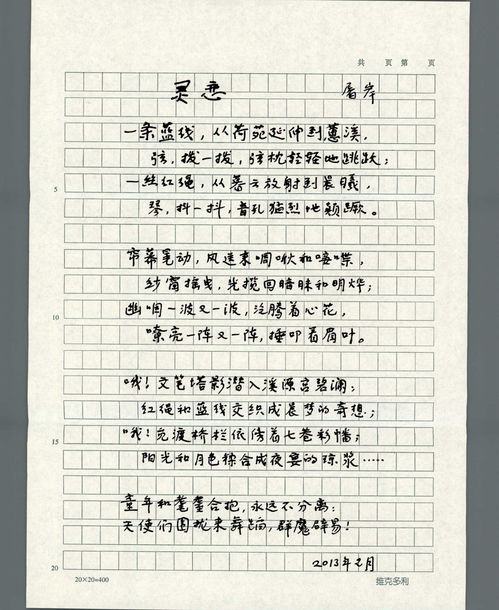 共 页 第 页
灵恋 屠岸
一条蓝线，从荷苑延伸到蕙溪，
弦，拨一拨，弦枕轻轻地跳跃；
一丝红绳，从暮云放射到晨曦，
琴，抖一抖，音孔猛烈地颠蹶。
5
帘幕晃动，风送来啁啾和喋喋，
纱窗摇曳，光揽回暗昧和明烨；
幽咽一波又一波，泛腾着心花，
嘹亮一阵又一阵，捶叩着眉叶。
10
哦！文笔塔影潜入溪源宫碧澜；
红绳和蓝线交织成晨梦的奇想；
哦！宛渡桥栏依傍着七卷彩幡；
15
阳光和月色糅合成夜宴的琼浆……
童年和耄耋合抱，永远不分离：
天使们围拢来舞蹈，群魔辟易！
2013年 月
20
20×20=400 维克多利